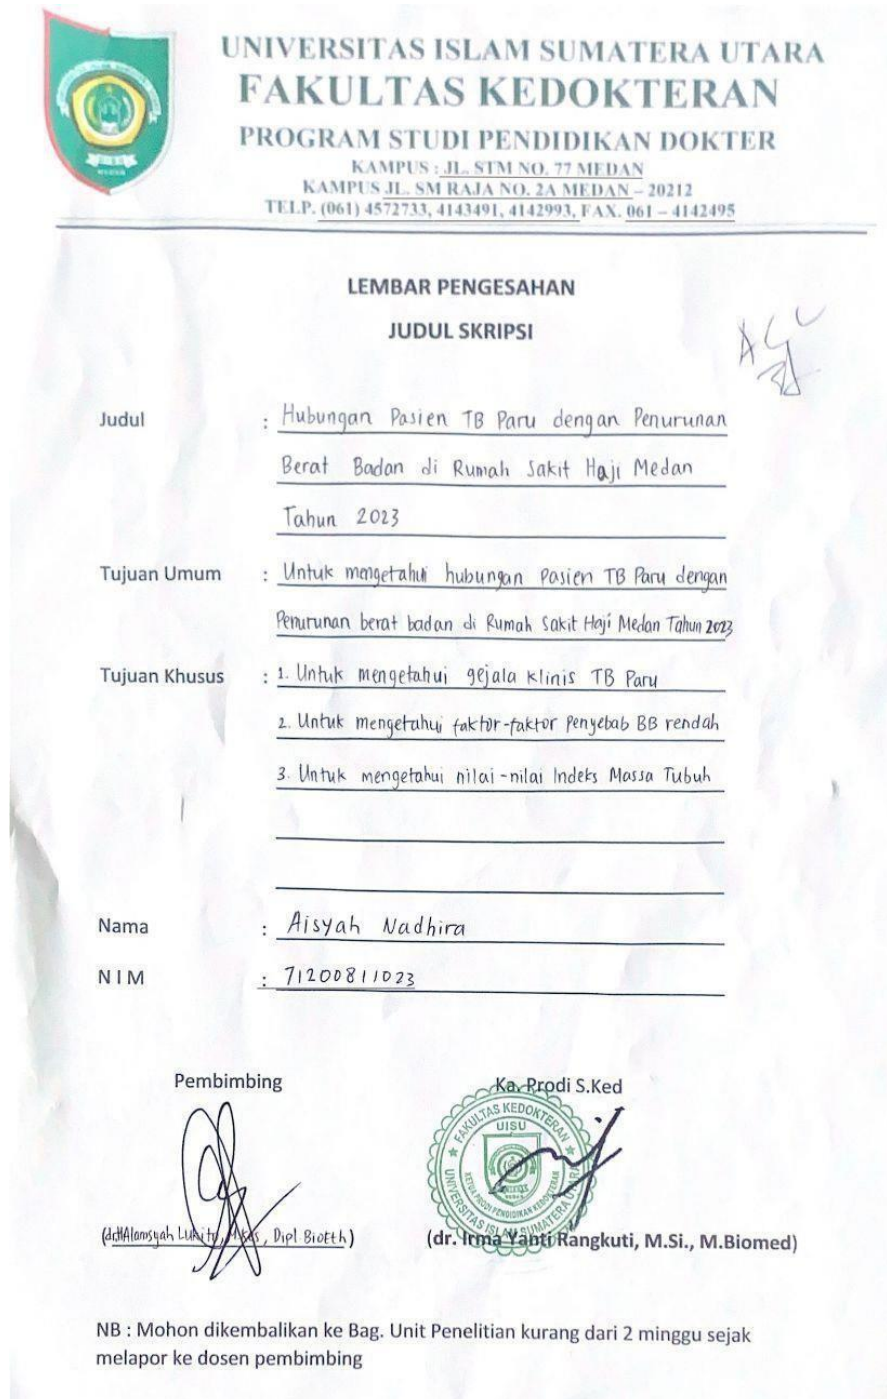 UNIVERSITAS ISLAM SUMATERA UTARA
FAKULTAS KEDOKTERAN
PROGRAM STUDI PENDIDIKAN DOKTER
KAMPUS : JL. STM NO. 77 MEDAN
KAMPUS JL. SM RAJA NO. 2A MEDAN – 20212
TELP. (061) 4572733, 4143491, 4142993, FAX. 061 – 4142495
LEMBAR PENGESAHAN
JUDUL SKRIPSI
ACC
Judul : Hubungan Pasien TB Paru dengan Penurunan
Berat Badan di Rumah Sakit Haji Medan
Tahun 2023
Tujuan Umum : Untuk mengetahui hubungan Pasien TB Paru dengan
Penurunan berat badan di Rumah Sakit Haji Medan Tahun 2023
Tujuan Khusus : 1. Untuk mengetahui gejala klinis TB Paru
2. Untuk mengetahui faktor-faktor Penyebab BB rendah
3. Untuk mengetahui nilai-nilai Indeks Massa Tubuh
Nama : Aisyah Nadhira
NIM : 71200811023
Pembimbing
Ka. Prodi S.Ked
FAKULTAS KEDOKTERAN
UISU
KETUA PRODI PENDIDIKAN KEDOKTERAN
UNIVERSITAS ISLAM SUMATERA UTARA
(dr.H Alamsyah Lukito, M.Kes, Dipl Bioeth)
(dr. Irma Yanti Rangkuti, M.Si., M.Biomed)
NB : Mohon dikembalikan ke Bag. Unit Penelitian kurang dari 2 minggu sejak
melapor ke dosen pembimbing